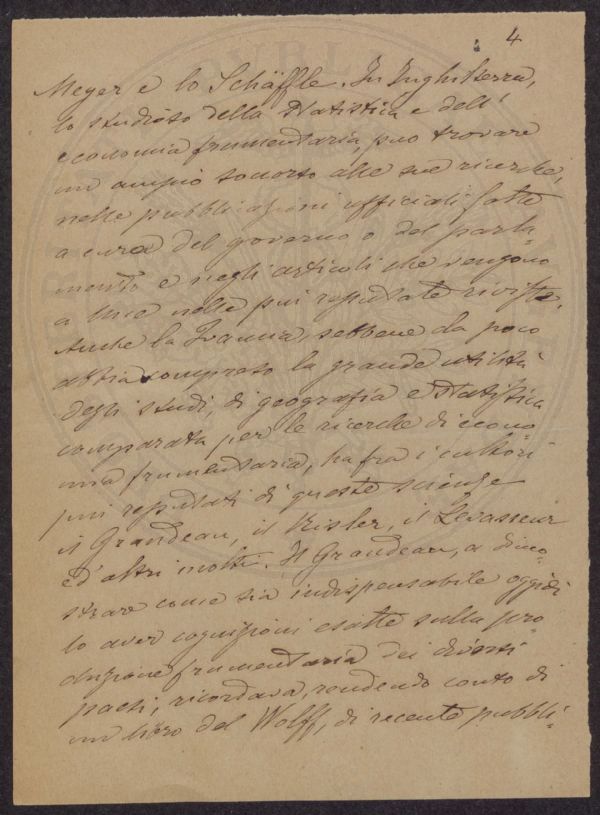 4
Meyer e lo Schäffle. In Inghilterra,
lo studioso della Statistica e dell'
economia frumentaria, può trovare
un ampio soccorso alle sue ricerche,
nelle pubblicazioni ufficiali fatte
a cura del governo o del parla-
mento e negli articoli che vengono
a luce nelle più reputate riviste.
Anche la Francia, sebbene da poco
abbia compreso la grande utilità
degli studi, di geografia e statistica
comparata per le ricerche di econo
mia frumentaria, ha fra i cultori
più reputati di queste scienze
il Grandeau, il Risler, il Levasseur
ed altri molti. Il Grandeau, a dimo-
strare come sia indispensabile oggidì
lo aver cognizioni esatte sulla pro-
duzione frumentaria dei diversi
paesi, ricordava, rendendo conto di
un libro del Wolff, di recente pubbli-